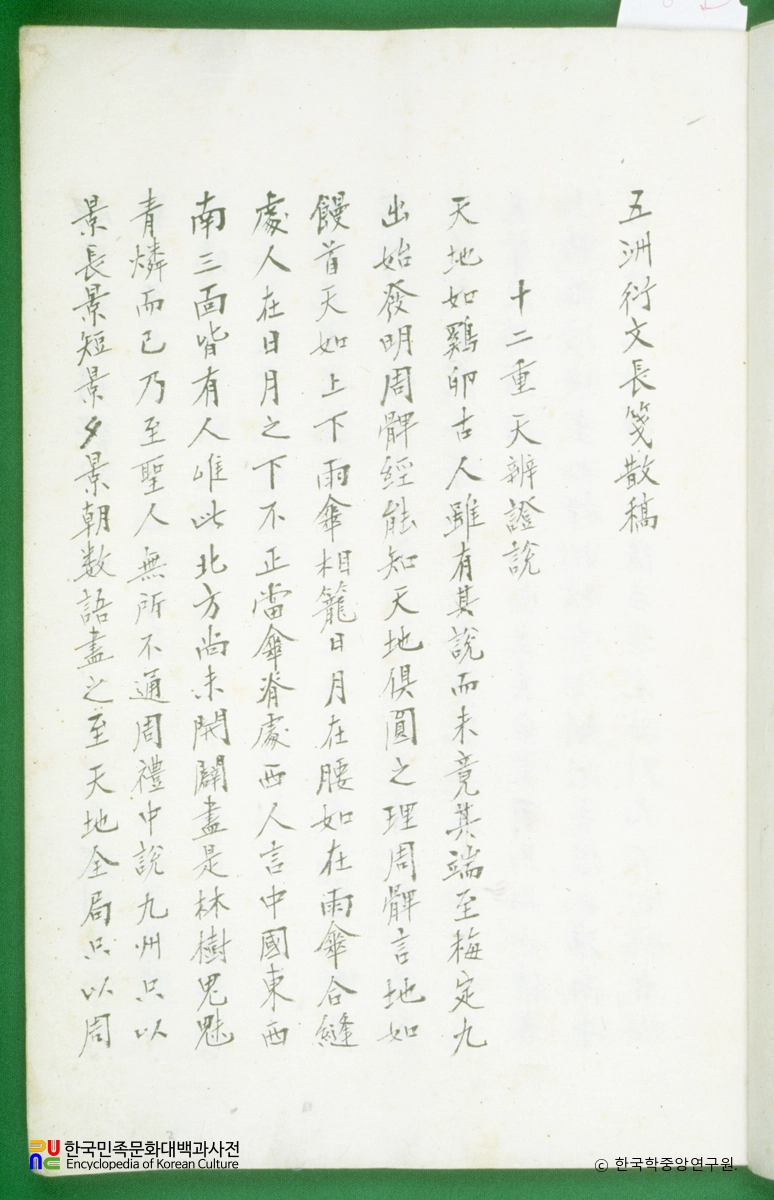 五洲衍文長箋散稿
十二重天辨證說
天地如鷄卵古人雖有其說而未竟其端至梅定九
出始發明周髀經能知天地俱圓之理周髀言地如
饅首天如上下雨傘相籠日月在腰如在雨傘合縫
處人在日月之下不正當傘脊處西人言中國東西
南三面皆有人唯此北方尚未開闢盡是林樹鬼魅
青燐而已乃至聖人無所不通周禮中說九州只以
景長景短景夕景朝数語盡之至天地全局只以周
한국민족문화대백과사전
Encyclopedia of Korean Culture
© 한국학중앙연구원.